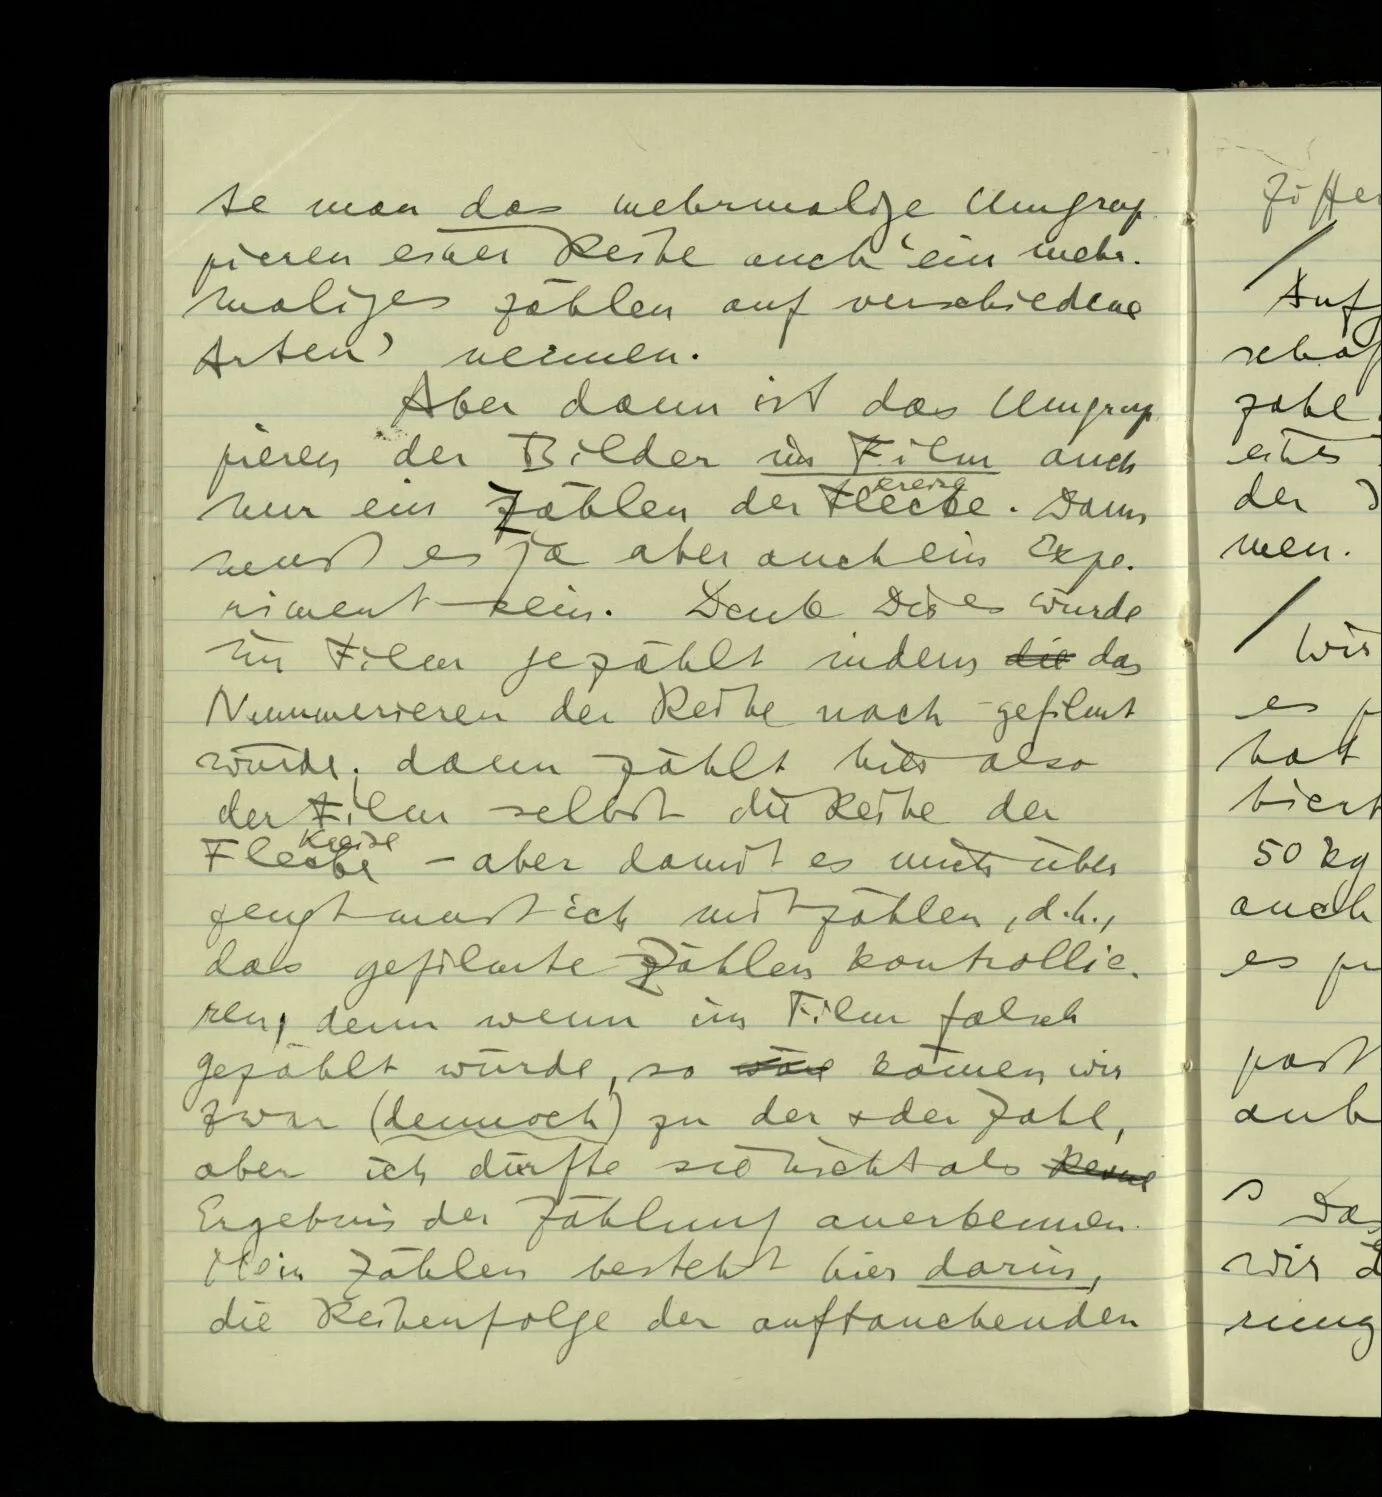 te man das mehrmalige Umgrup
pieren einer Reihe auch ‘ein mehr-
maliges zählen auf verschiedene
Arten’ nennen.
Aber dann ist das Umgrup
pieren der Bilder im Film auch
Kreise
nur ein Zählen der Flecke. Dann
muß es ja aber auch ein Expe-
riment sein. Denk Dir es würde
im Film gezählt indem die das
Nummerieren der Reihe nach gefilmt
würde; dann zählt hier also
der Film selbst die Reihe der
Kreise
Flecke – aber damit es mich über
zeugt muß ich mitzählen, d.h.,
das gefilmte Zählen kontrollie-
ren, denn wenn im Film falsch
gezählt würde, so wäre kämen wir
zwar (dennoch) zu der & der Zahl,
aber ich dürfte sie nicht als
Ergebnis der Zählung anerkennen.
Mein Zählen besteht hier darin,
die Reihenfolge der auftauchenden
Ziffer
/
Auf
schaf
zahl.
eines
der
men.
/
Wir
es
hat
biert
50 kg
auch
es
past
anb
S Das
wir d
rung